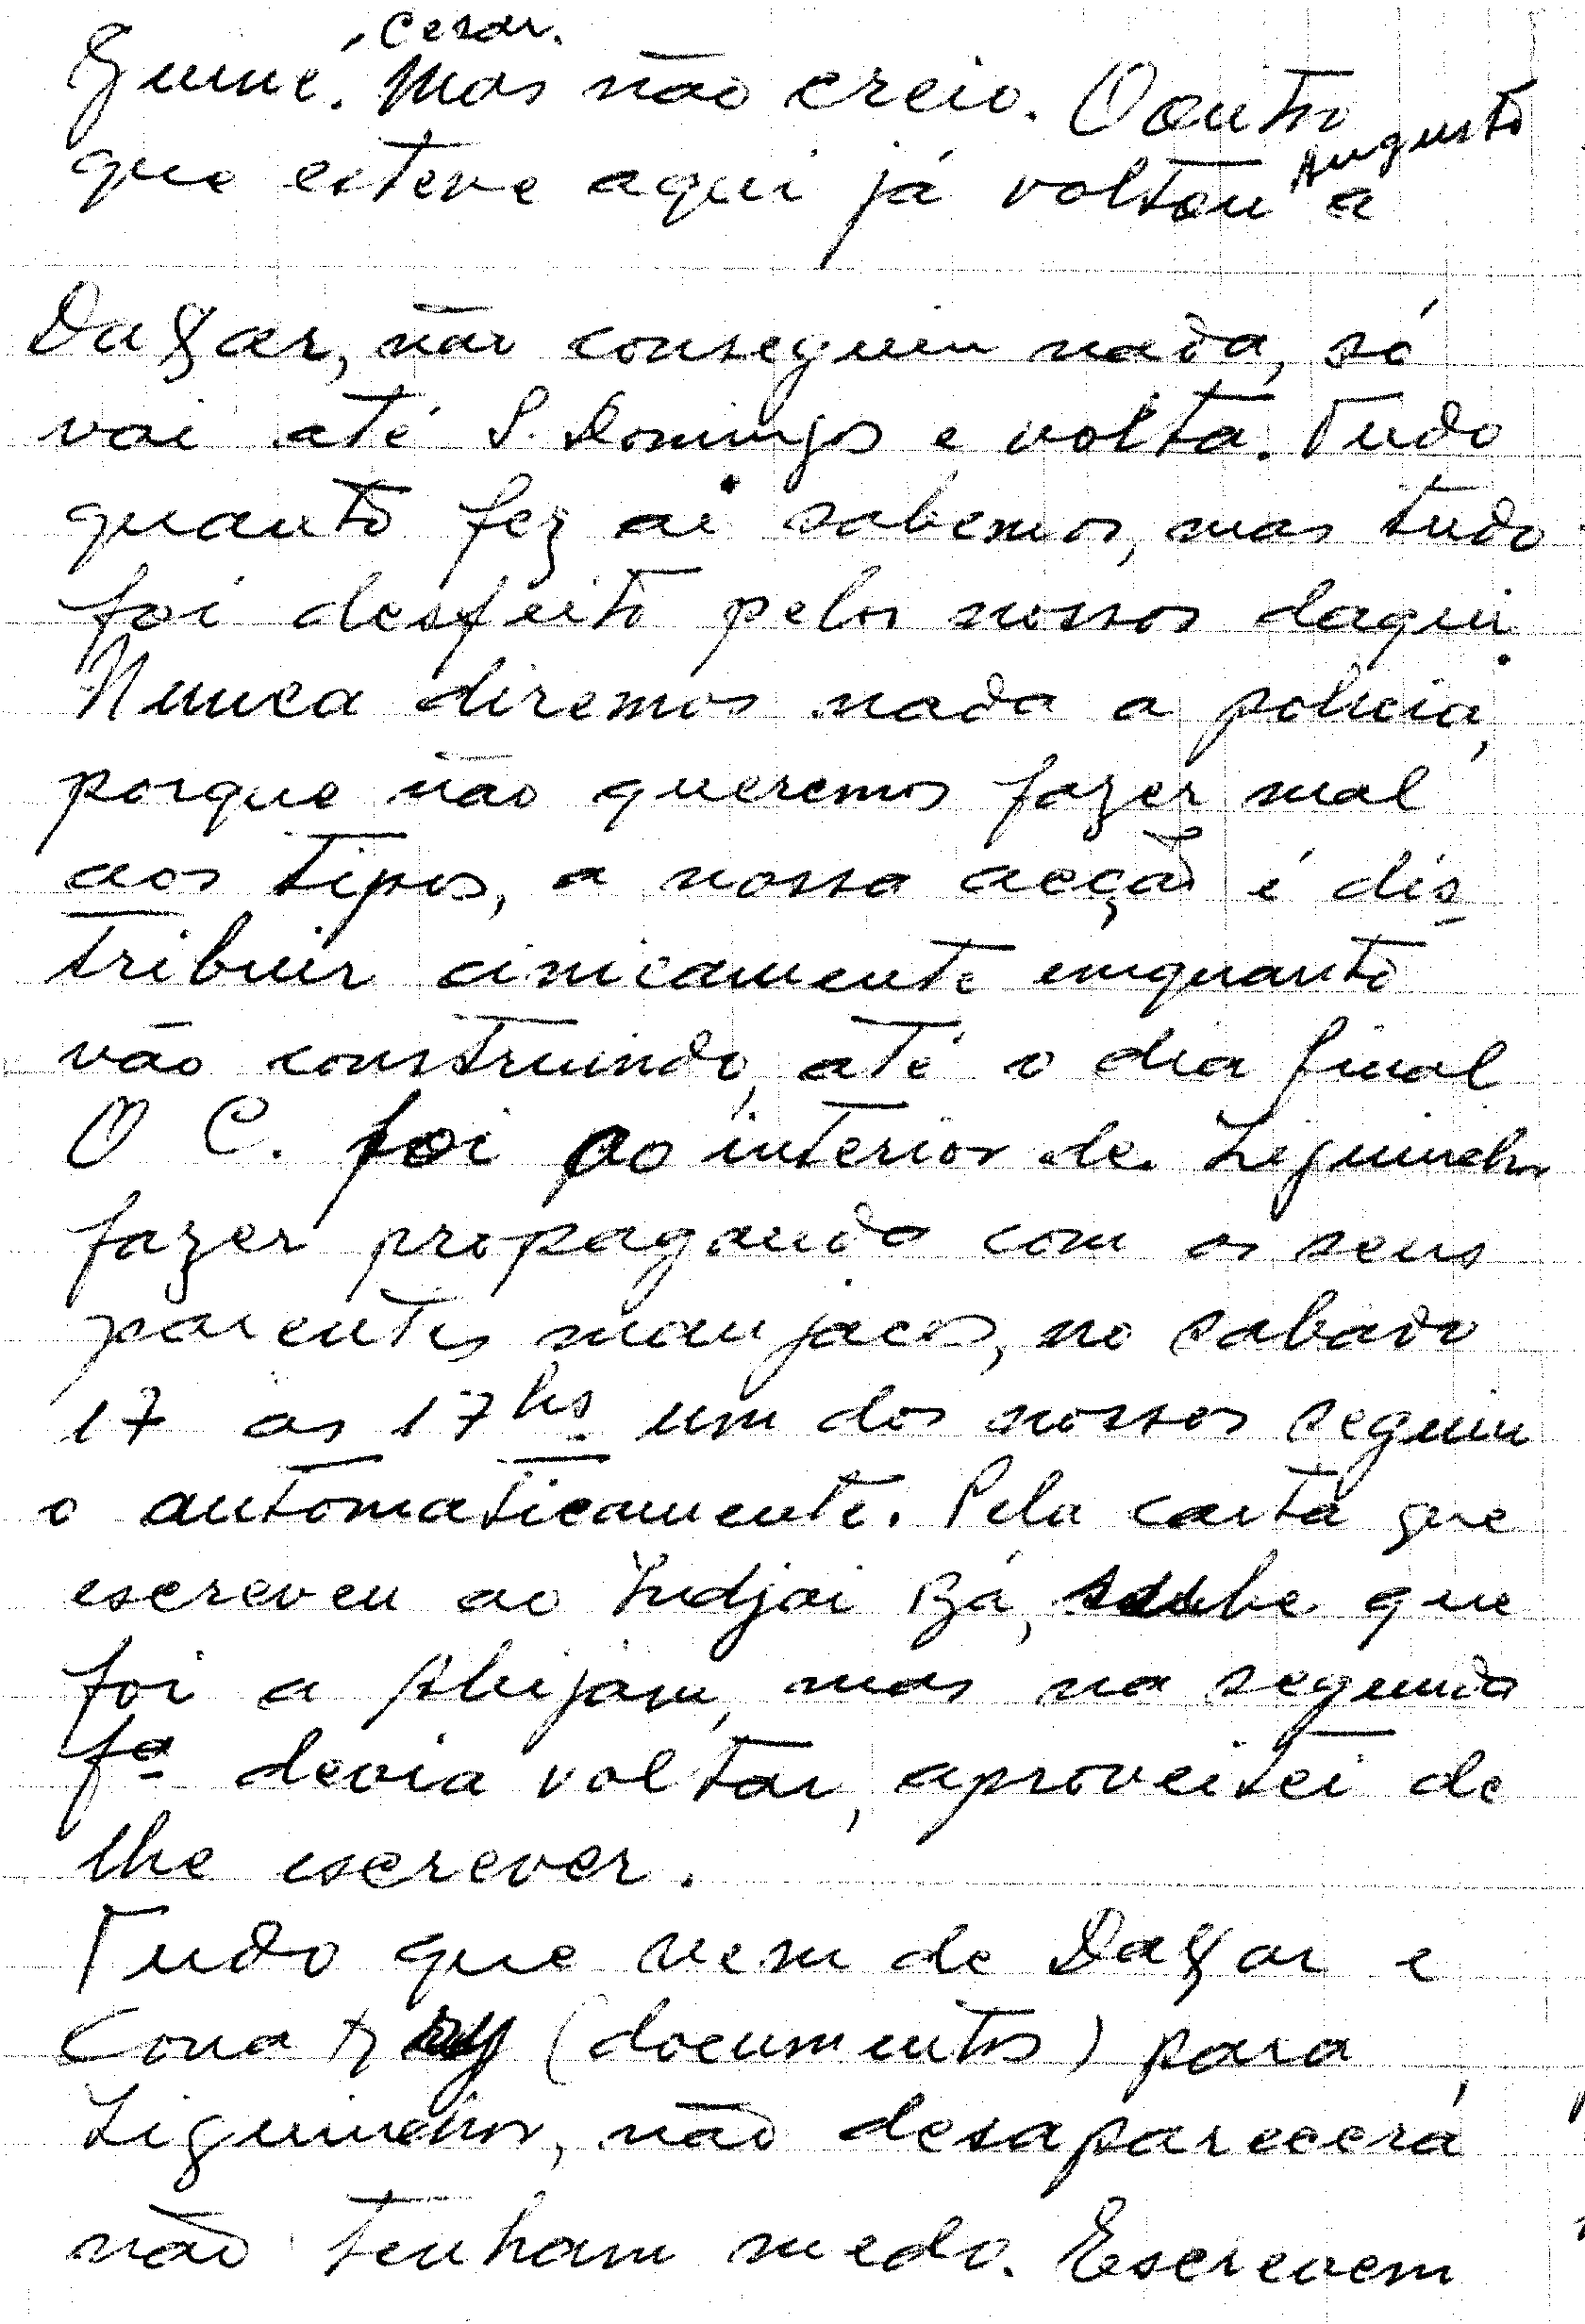 , Cesar.
Guiné. Mas não creio. O outro
que esteve aqui já voltou Augusto a
Dakar, não conseguiu nada, só
vai até S. Domingos e volta. Tudo
quanto fez ai sabemos, mas tudo
foi desfeito pelos nossos daqui.
Nunca diremos nada a policia,
porque não queremos fazer mal
aos tipos, a nossa acção é dis-
tribuir cinicamente emquanto
vão construindo, até o dia final
O C. foi ao interior de Ziguinchor
fazer propaganda com os seus
parentes manjacos, no sabado
17 as 17hs um dos nossos seguiu
o automaticamente. Pela carta que
escreveu ao Indjai Bá, soube que
foi a Abijam, mas na segunda
fª devia voltar, aproveitei de
lhe escrever.
Tudo que vem de Dakar e
Conakry (documentos) para
Ziguinchor, não desaparecerá,
não tenham medo. Escrevem